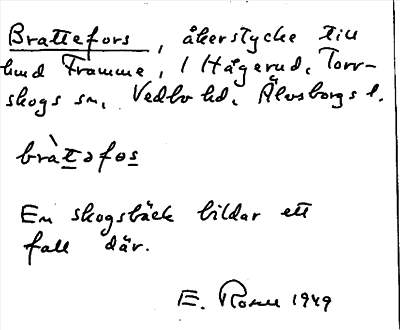 Brattefors, åkerstycke till
hmd Framme, 1 Hågerud, Torr-
skogs sn, Vedbo hd, Älvsborgs l.
bràtəfɵs
En skogsbäck bildar ett
fall där.
E. Rosell 1949